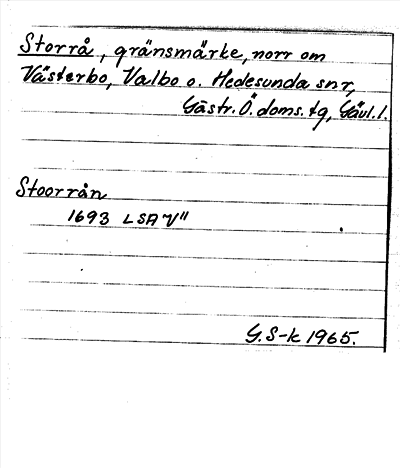 Storrå, gränsmärke, norr om
Västerbo, Valbo o. Hedesunda snr,
Gästr. Ö. doms. tg, Gävl. l.
Stoorrån
1693 LSA V"
G. S-k 1965.